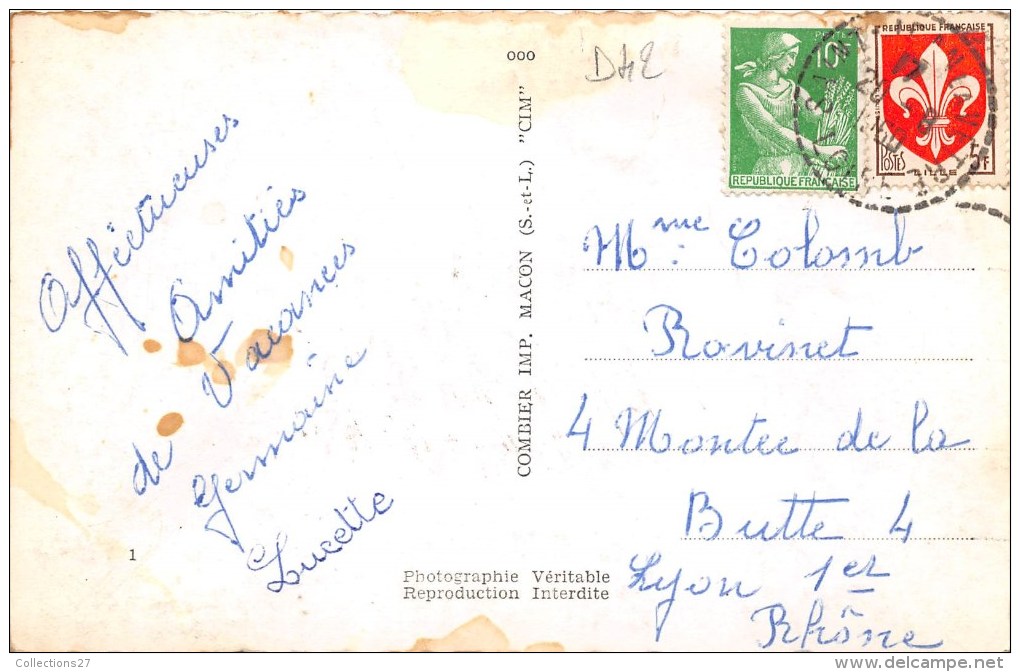 ooo
D42
POSTES
10F
REPUBLIQUE FRANÇAISE
REPUBLIQUE FRANÇAISE
POSTES
5F
LILLE
Afféctueuses
Amitiés
de Vacances
Germaine
Lucette
1
COMBIER IMP. MACON (S.-et-L.) "CIM"
Photographie Véritable
Reproduction Interdite
Mme: Colomb
Rovinet
4 Montee de la
Butte 4
Lyon 1er
Rhône
Collections27
http://www.delcampe.net